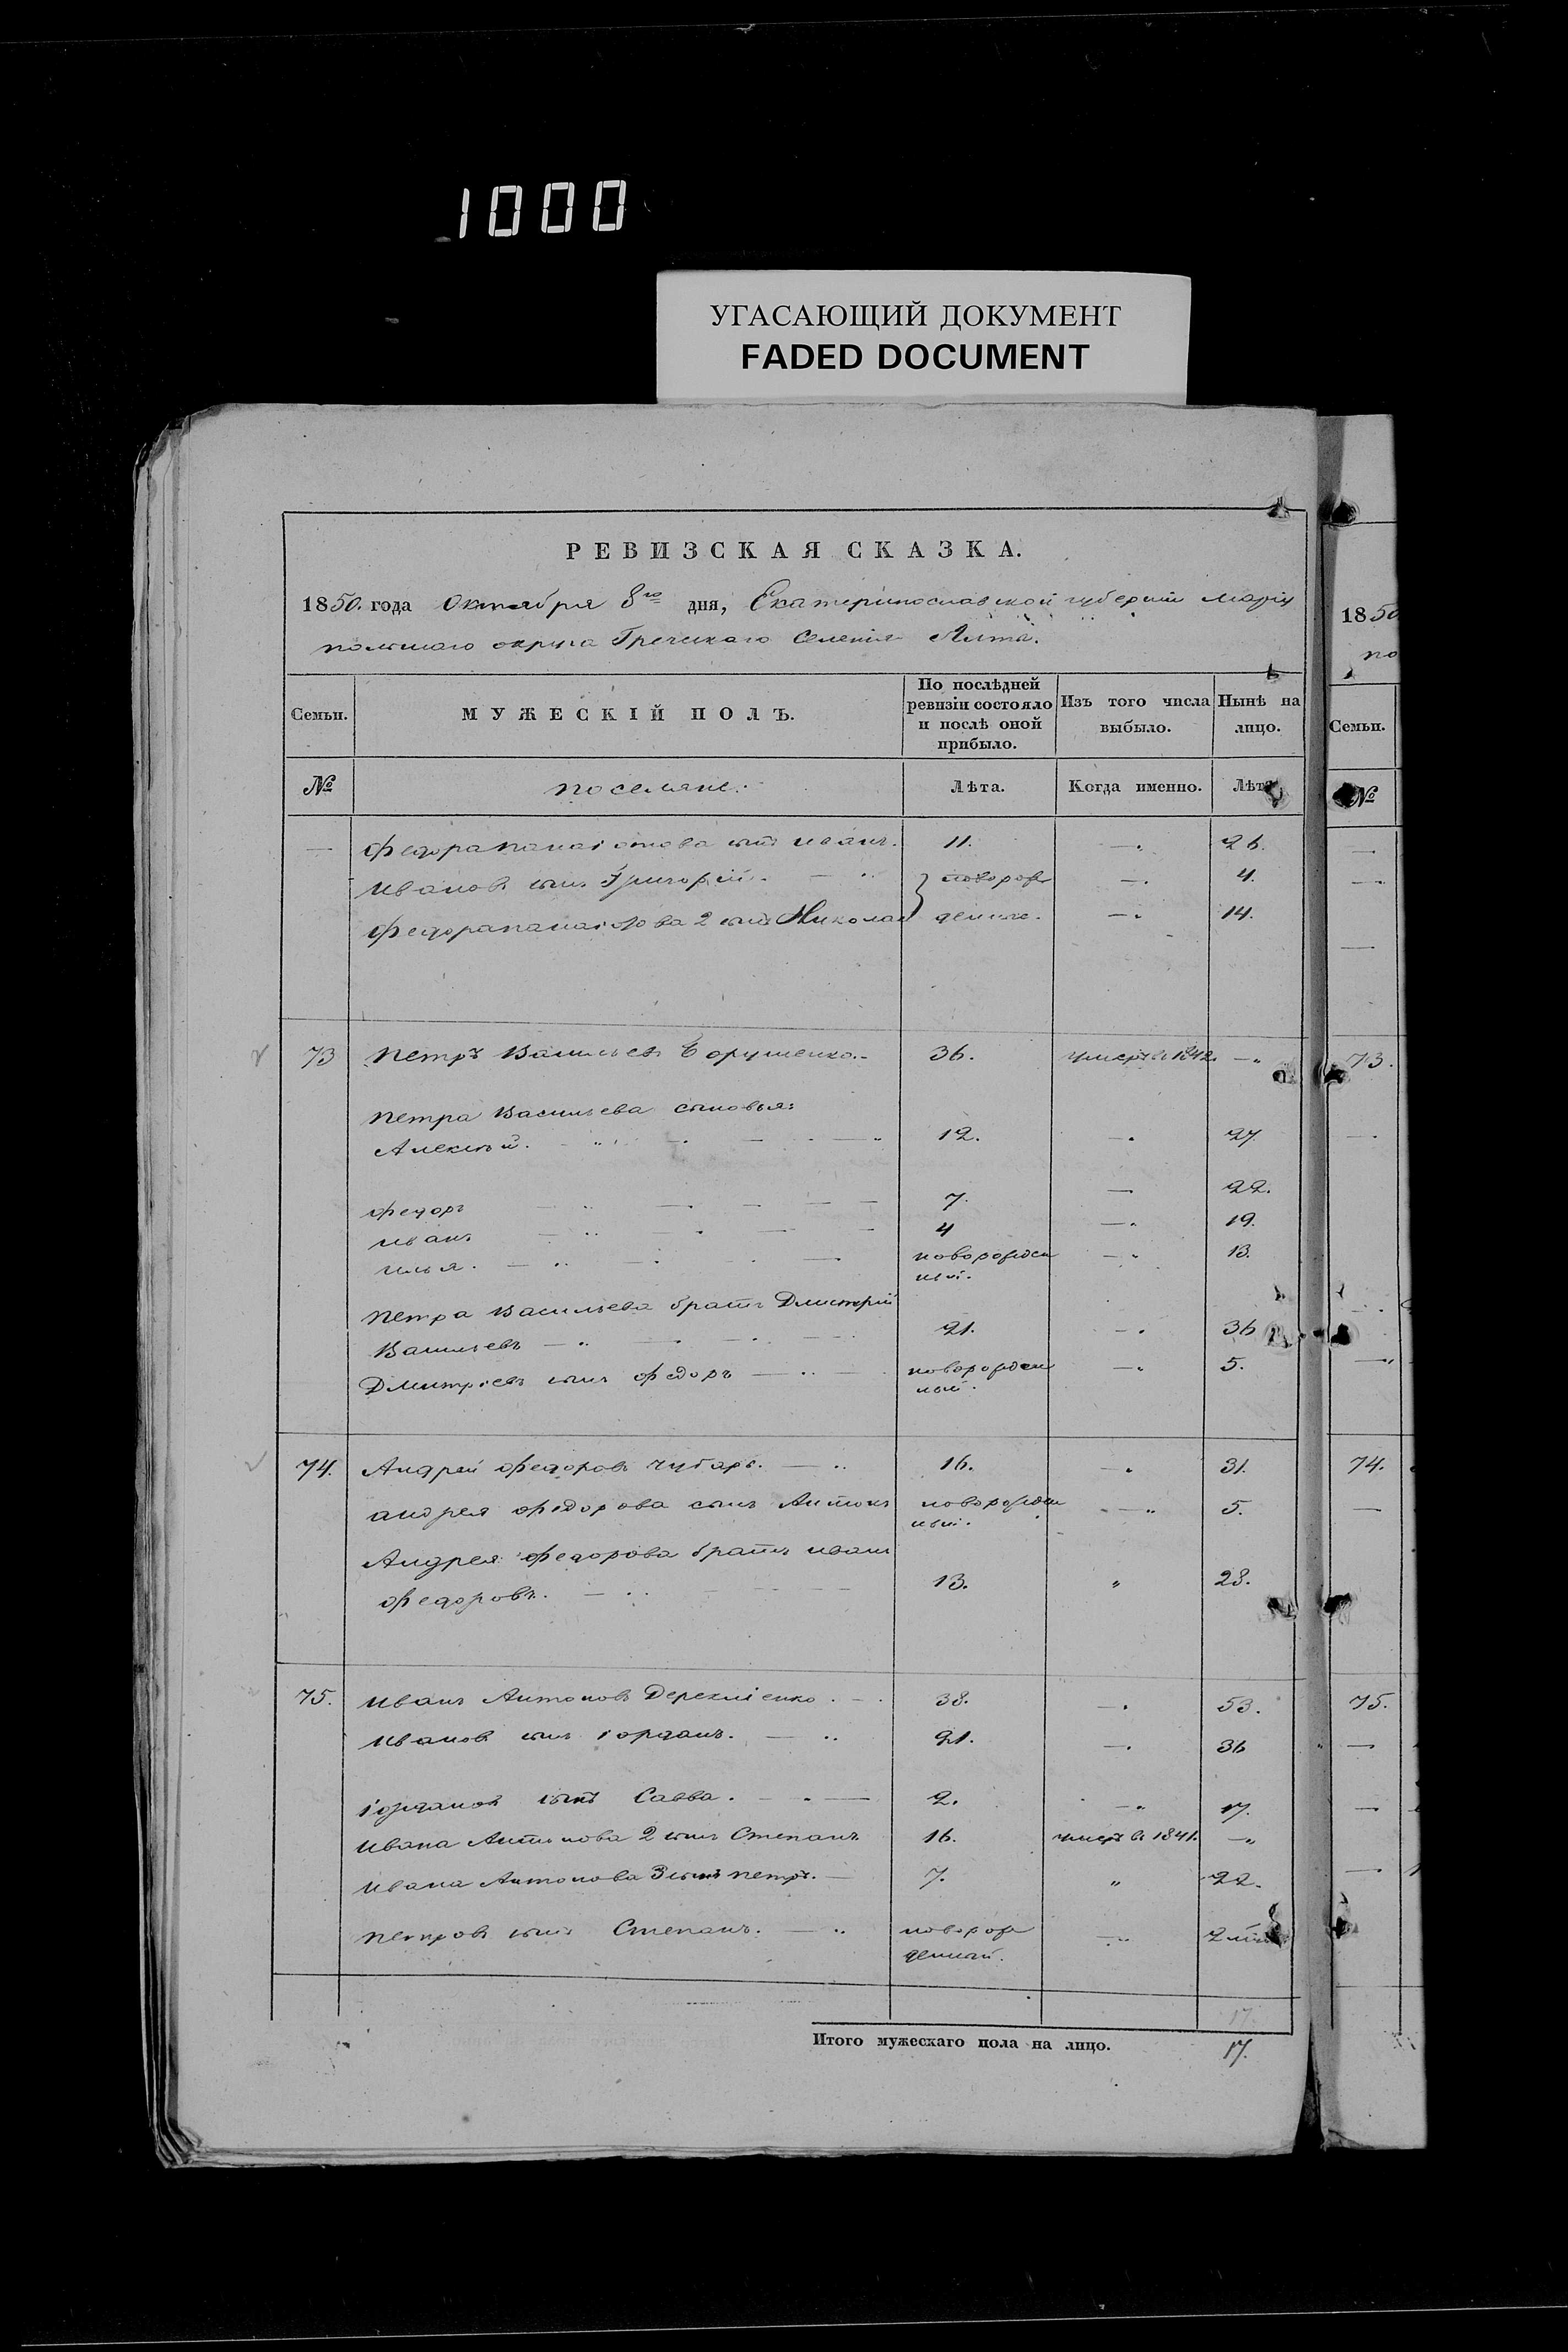 1000
УГАСАЮЩИЙ ДОКУМЕНТ
FADED DOCUMENT
РЕВИЗСКАЯ СКАЗКА.
1850. года Октября 8го дня, Екатеринославской губернiи Марiу
польскаго округа Греческаго Селенiя Ялта.
Семьи. МУЖЕСКIЙ ПОЛЪ. По послѣдней ревизiи состояло и послѣ оной прибыло. Изъ того числа выбыло. Нынѣ на лицо.
№ поселяне. Лѣта. Когда именно. Лѣта
— Федора Панаiотова сынъ иванъ. 11. —. 26.
Ивановъ сынъ Григорiй. — новорож —. 4.
Федора Панаiотова 2 сынъ Николай денные. —. 14.
73 Петръ Васильевъ 36. умеръ въ 1842. —„
Петра Васильева сыновья:
Алексѣй. — 12. —. 27
Федоръ — 7. — 22.
Иванъ — 4 —. 19.
Илья. — новорожден —„ 13.
ный.
Петра Васильева братъ Дмитрiй
Васильевъ — 21. —. 36
Дмитрiевъ сынъ Федоръ — новорожден —„ 5.
ный.
74. Андрей Федоровъ Чубарь. — 16. —. 31.
Андрея Федорова сынъ Антонъ новорожден —„ 5.
ный.
Андрея Федорова братъ иванъ
Федоровъ. — 13. „ 28.
75. Иванъ Антоновъ Дерекшенко. — 38. —. 53.
Ивановъ сынъ iорданъ. — 21. —. 36
iордановъ сынъ Савва. — 2. —„ 17.
Ивана Антонова 2 сынъ Степанъ 16. умеръ въ 1841. —„
Ивана Антонова 3 сынъ Петръ. — 7. „ 22.
Петровъ сынъ Степанъ. — новорож —„ 2
денный.
17.
Итого мужескаго пола на лицо. 17.
1850
по
Семьи.
№
73.
74.
75.